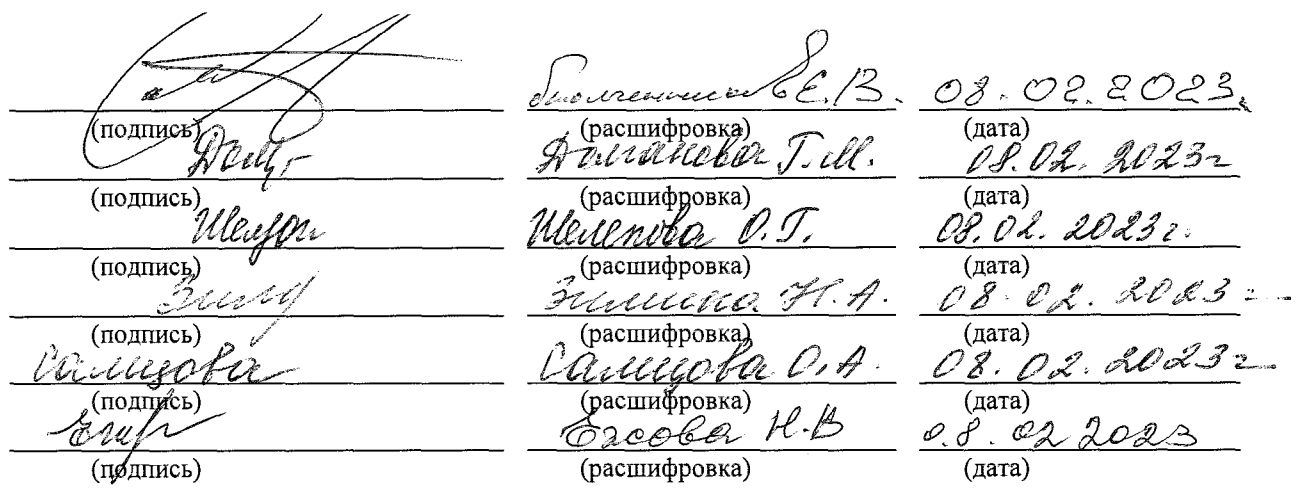 Е.В. 08.02.2023.
(подпись) (расшифровка) (дата)
Долг Долганова Г.М. 08.02.2023г
(подпись) (расшифровка) (дата)
Шелепова О.Г. 08.02.2023г.
(подпись) (расшифровка) (дата)
Зилина Н.А. 08.02.2023г
(подпись) (расшифровка) (дата)
Салищова Салищова О.А. 08.02.2023г
(подпись) (расшифровка) (дата)
Ежова Н.В 08.02 2023
(подпись) (расшифровка) (дата)